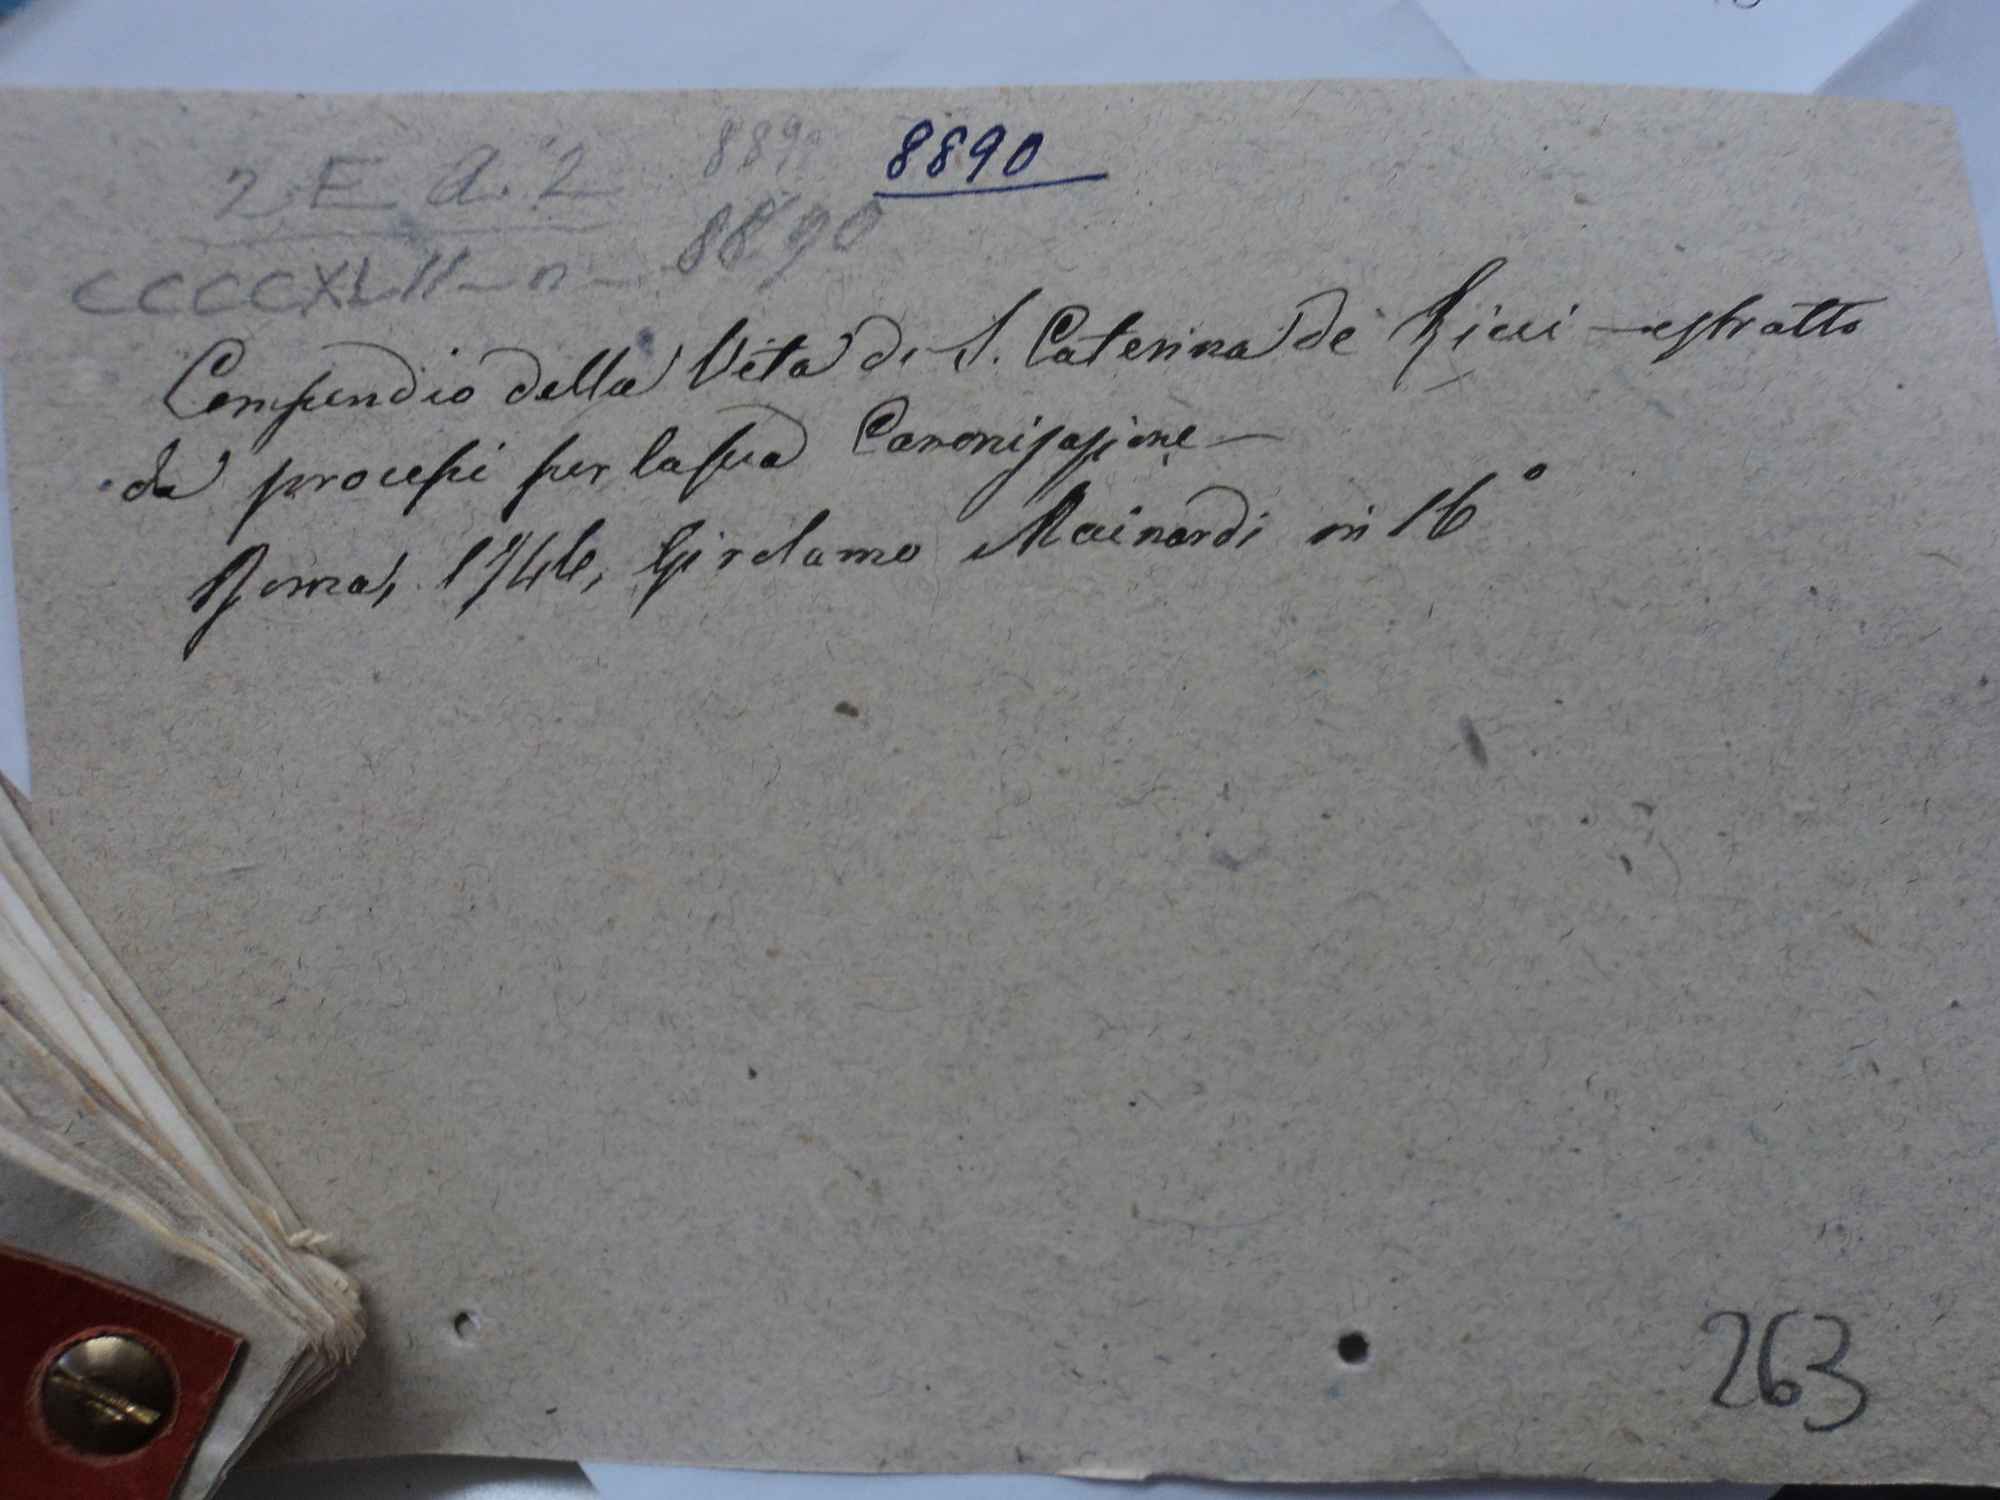 2 E a. 2 8890 8890
CCCCXLII - n - 8890
Compendio della Vita di S. Caterina de' Ricci - estratto
da processi per la sua Canonizazione -
Roma, 1746, Girolamo Mainardi in 16°
263